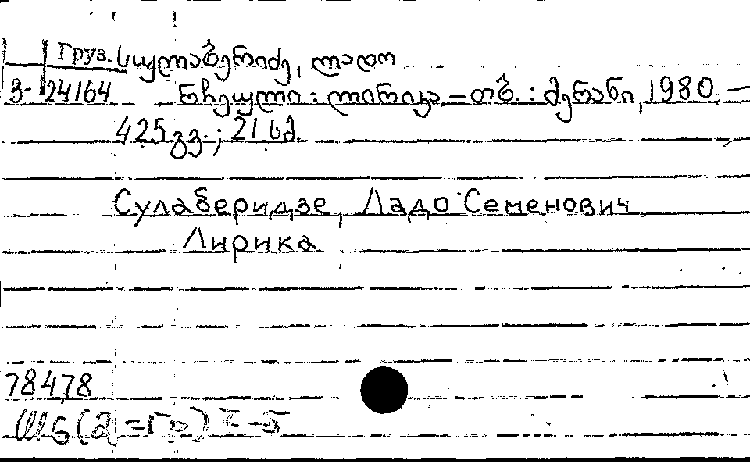 Груз. სულაბერიძე, ლადო
3-24164 რჩეული : ლირიკა. – თბ. : მერანი, 1980. –
425 გვ. ; 21 სმ.
Сулаберидзе, Ладо Семенович
Лирика
78478